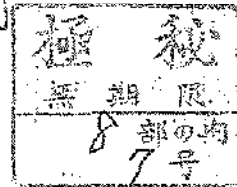 極秘
無期限
8部の内
7号